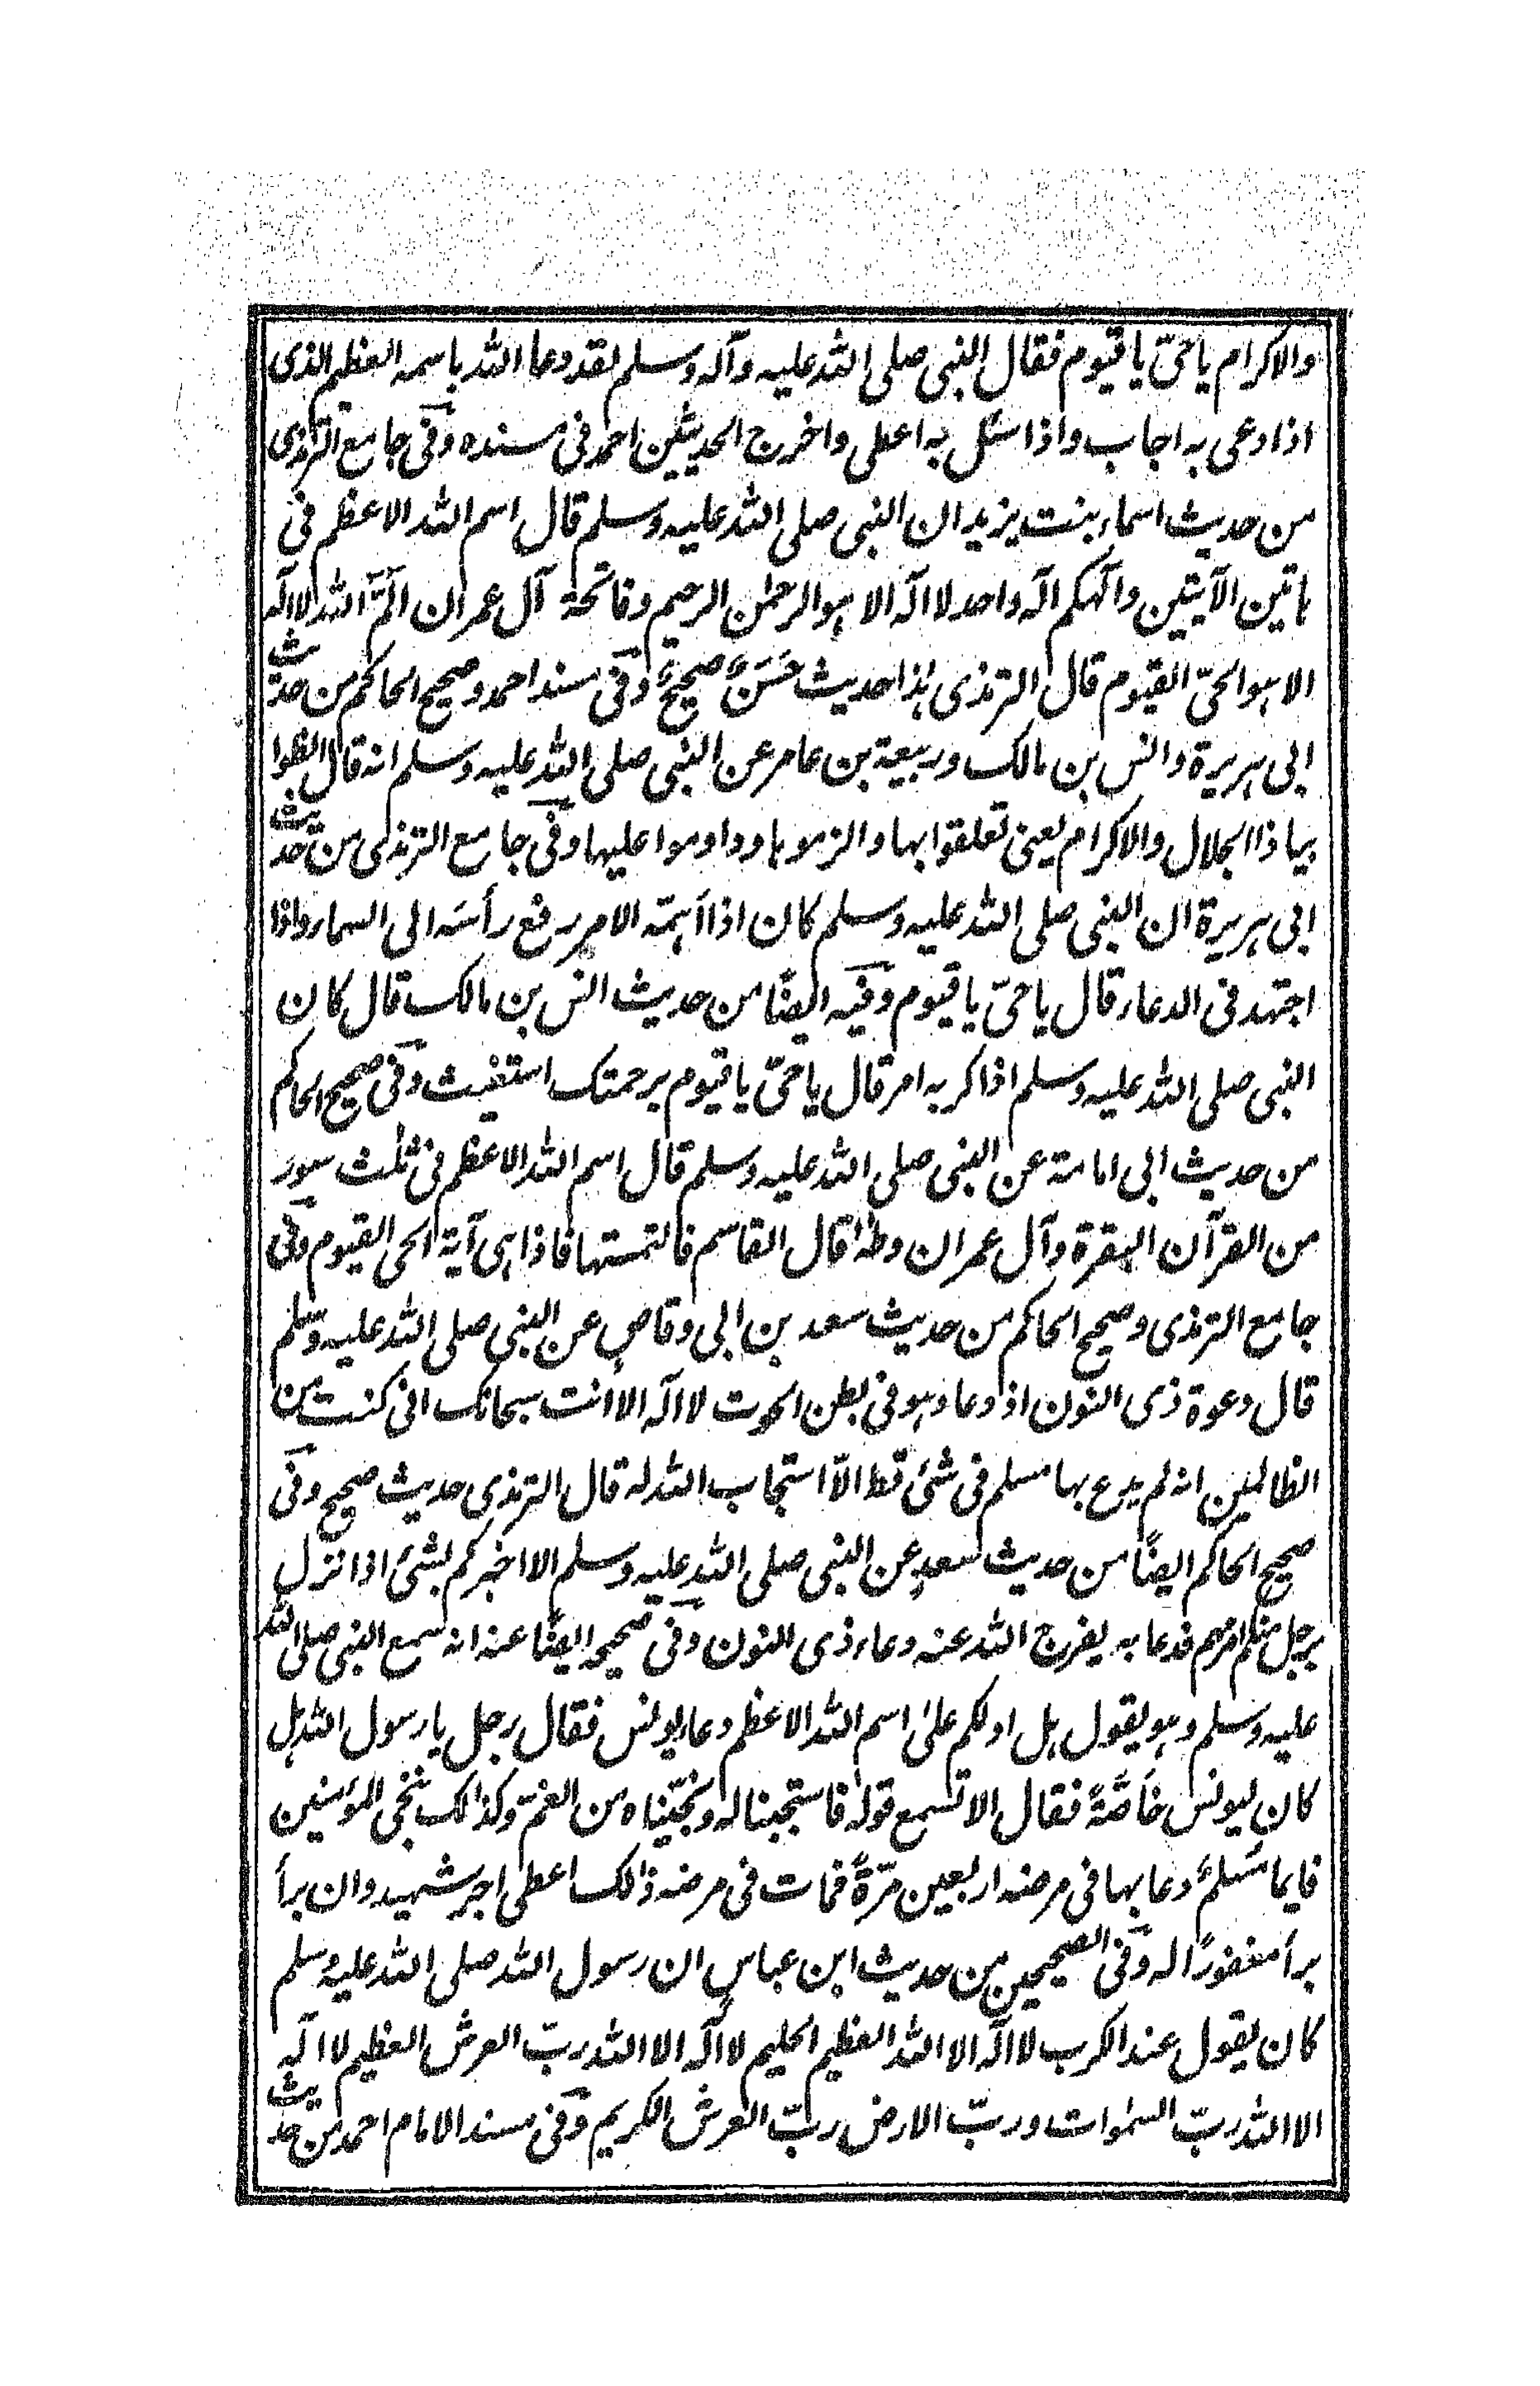 والاکرام یا حیّ یا قیّوم فقال النبی صلی اللہ علیہ وآلہ وسلم لقد دعا اللہ باسمہ العظیم الذی
اذا دعی بہ اجاب واذا سئل بہ اعطی واخرج الحدیثین احمد فی مسندہ وفی جامع الترمذی
من حدیث اسماء بنت یزید ان النبی صلی اللہ علیہ وسلم قال اسم اللہ الاعظم فی
ہاتین الآیتین والٓہکم الٓہ واحد لا الٓہ الا ہو الرحمٰن الرحیم وفاتحۃ آل عمران الٓمّٓ اللہ لا الٓہ
الا ہو الحیّ القیوم قال الترمذی ہٰذا حدیث حَسَنٌ صحیحٌ وفی مسند احمد وصحیح الحاکم من حدیث
ابی ہریرۃ وانس بن مالک وربیعۃ بن عامر عن النبی صلی اللہ علیہ وسلم انہ قال الظوا
بیا ذا الجلال والاکرام یعنی تعلقوا بہا والزموہا وداوموا علیہا وفی جامع الترمذی من حدیث
ابی ہریرۃ ان النبی صلی اللہ علیہ وسلم کان اذا اَہمّہ الامر رفع رأسَہ الی السماء واذا
اجتہد فی الدعاء قال یا حیّ یا قیوم وفیہ ایضًا من حدیث انس بن مالک قال کان
النبی صلی اللہ علیہ وسلم اذا کربہ امر قال یا حیّ یا قیوم برحمتک استغیث وفی صحیح الحاکم
من حدیث ابی امامۃ عن النبی صلی اللہ علیہ وسلم قال اسم اللہ الاعظم فی ثلٰث سور
من القرآن البقرۃ وآل عمران وطٰہٰ قال القاسم فالتمستہا فاذا ہی آیۃ الحی القیوم وفی
جامع الترمذی وصحیح الحاکم من حدیث سعد بن ابی وقاص عن النبی صلی اللہ علیہ وسلم
قال دعوۃ ذی النون اذ دعا وہو فی بطن الحوت لا الٓہ الا أنت سبحانک انی کنت من
الظالمین انہ لم یدع بہا مسلم فی شئ قط الّا استجاب اللہ لہ قال الترمذی حدیث صحیح وفی
صحیح الحاکم ایضًا من حدیث سعدٍ عن النبی صلی اللہ علیہ وسلم الا اخبرکم بشئ اذا نزل
برجل منکم امر مہم فدعا بہ یفرج اللہ عنہ دعاء ذی النون وفی صحیحہ ایضًا عنہ انہ سمع النبی صلی اللہ
علیہ وسلم وہو یقول ہل ادلکم علیٰ اسم اللہ الاعظم دعاء یونس فقال رجل یا رسول اللہ ہل
کان لیونس خَاصَّۃً فقال الا تسمع قولہ فاستجبنا لہ ونجّیناہ من الغمّ وکذالک ننجی المؤمنین
فایما مُسْلمٌ دعا بہا فی مرضہ اربعین مرّۃً فمات فی مرضہ ذٰلک اعطی اجر شہید وان برأ
برأ مغفورًا لہ وفی الصحیحین من حدیث ابن عباسٍ ان رسول اللہ صلی اللہ علیہ وسلم
کان یقول عند الکرب لا الٓہ الا اللہ العظیم الحلیم لا الٓہ الا اللہ ربّ العرش العظیم لا الٓہ
الا اللہ ربّ السمٰوات وربّ الارض ربّ العرش الکریم وفی مسند الامام احمد من حدیث